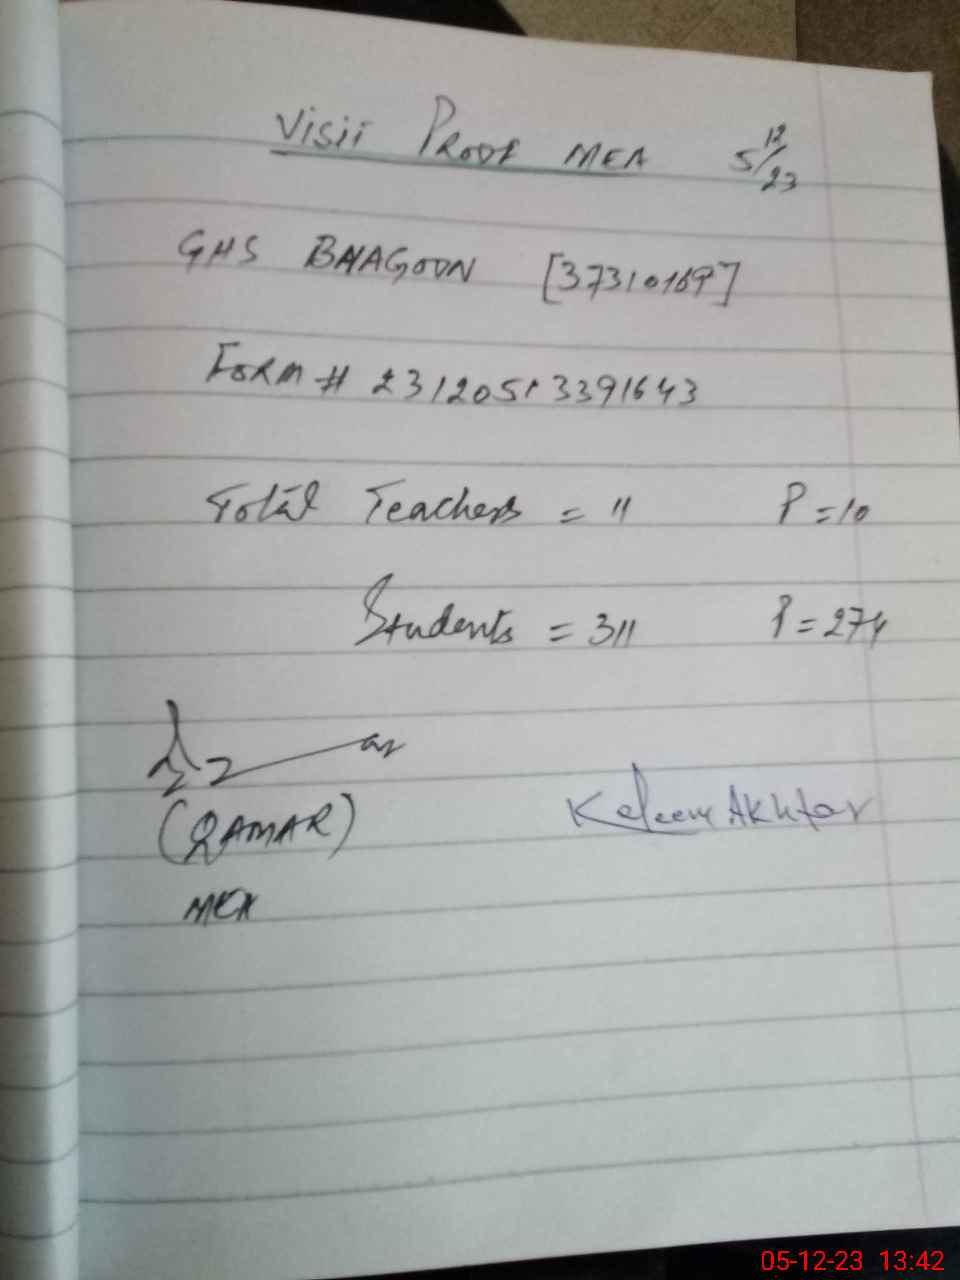 Visit PROOF MEA 5/12/23
GHS BHAGOON [37310169]
FORM # 23120513391643
Total Teachers = 11 P = 10
Students = 311 P = 274
(QAMAR)
MEA
Kaleem Akhtar
05-12-23 13:42